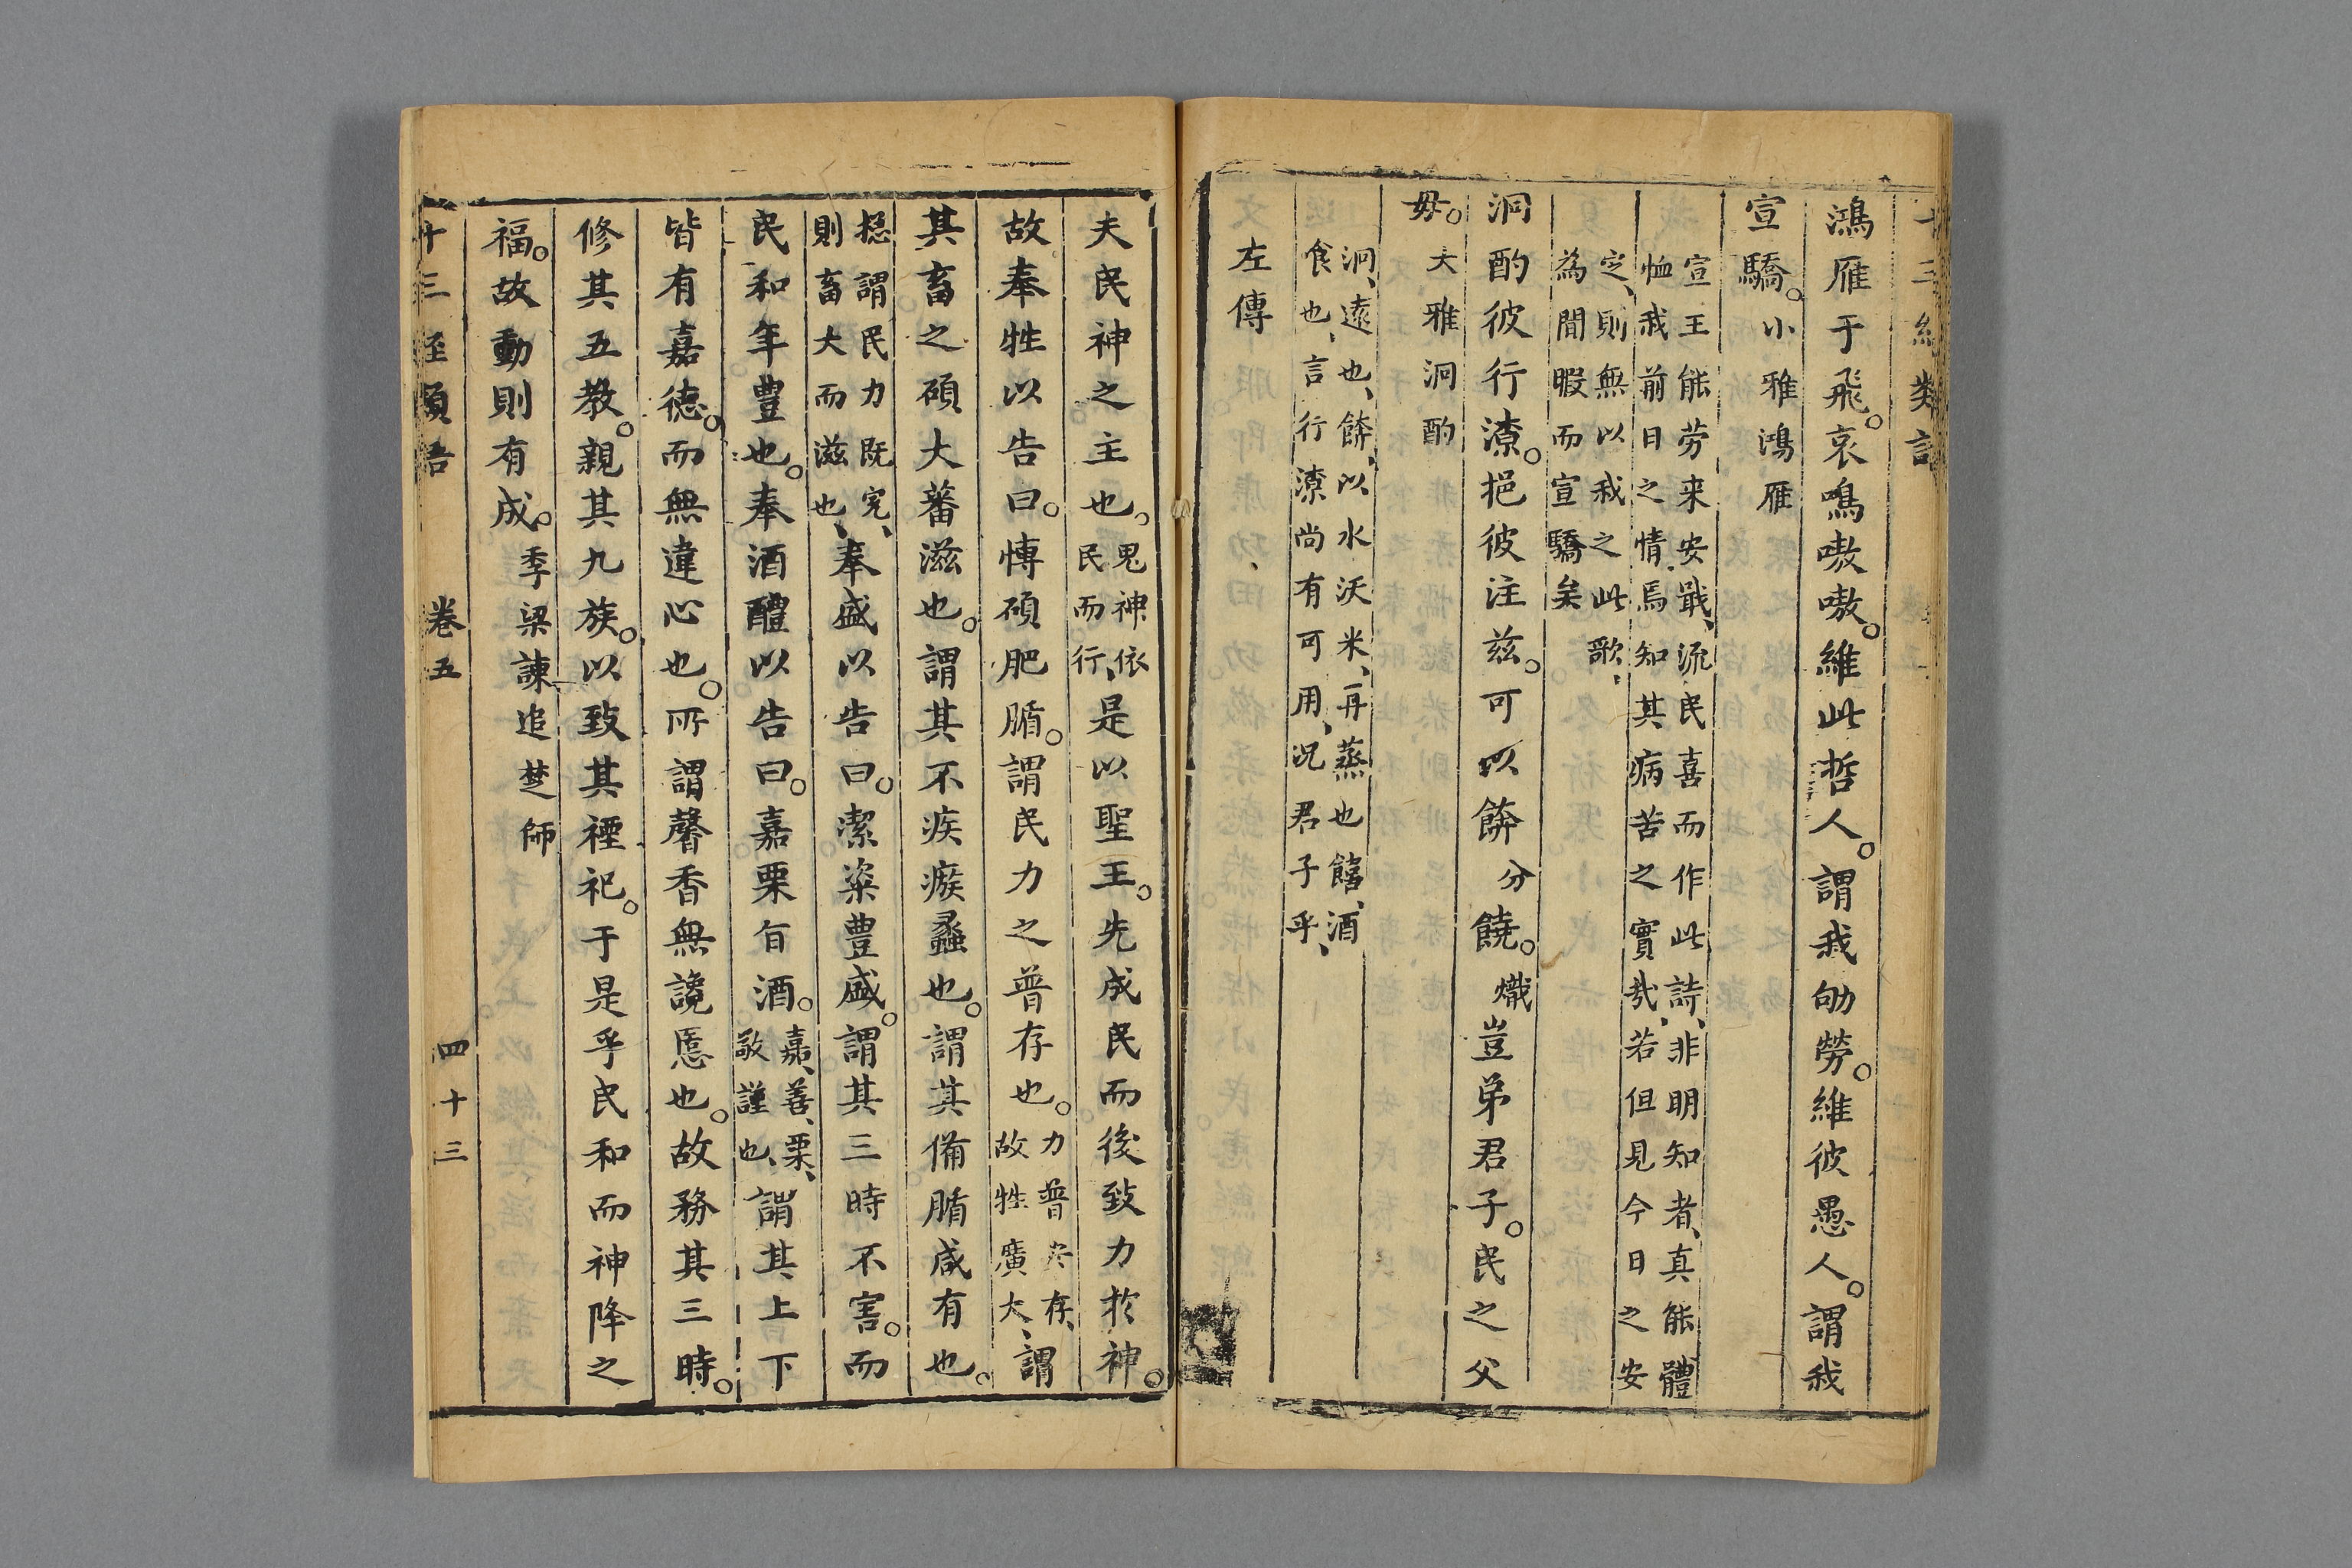 十三經類語
鴻雁于飛。哀鳴嗷嗷。維此哲人。謂我劬勞。維彼愚人。謂我
宣驕。小雅鴻雁
宣王能劳来安戢、流民喜而作此詩、非明知者、真能體
恤我前日之情焉、知其病苦之實哉、若但見今日之安
定、則無以我之此歌、
為間暇而宣驕矣
泂酌彼行潦。挹彼注茲。可以餴分饒。熾豈弟君子。民之父
毋。大雅泂酌
泂、遠也、餴、以水沃米、再蒸也饎、酒
食也、言行潦尚有可用、况君子乎、
左傳
夫民神之主也。鬼神依民而行、是以聖王。先成民而後致力於神。
故奉牲以告曰。愽碩肥腯。謂民力之普存也。力普存、故牲廣大、謂
其畜之碩大蕃滋也。謂其不疾瘯蠡也。謂其備腯咸有也。
揔謂民力既完、則畜大而滋也、奉盛以告曰。潔粢豊盛。謂其三時不害。而
民和年豊也。奉酒醴以告曰。嘉栗旨酒。嘉、善、栗、敬謹也、謂其上下
皆有嘉德。而無違心也。所謂馨香無讒慝也。故務其三時。
修其五教。親其九族。以致其禋祀。于是乎民和而神降之
福。故動則有成。季梁諫追楚師
十三經類語 卷五 四十三